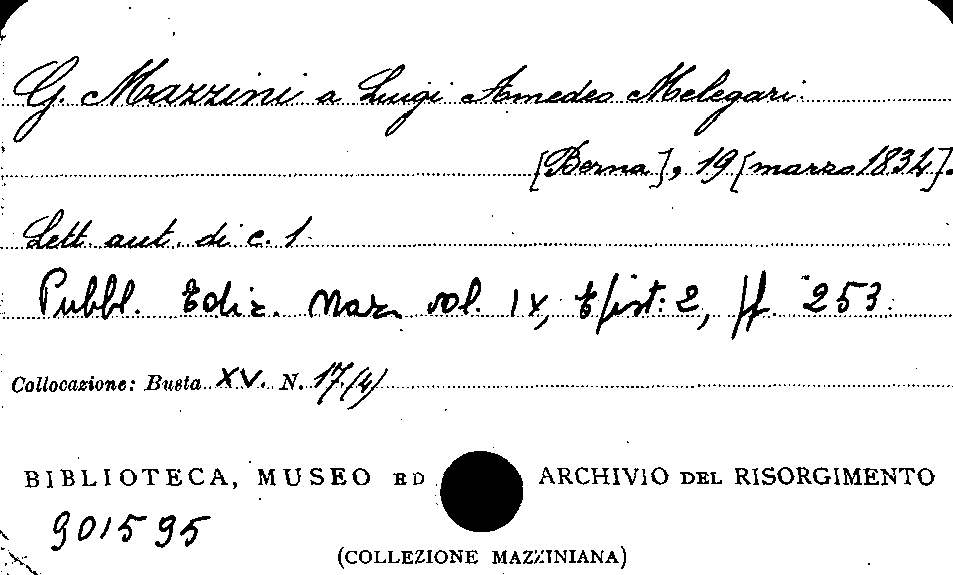 G. Mazzini a Luigi Amedeo Melegari.
[Berna], 19 [marzo 1834].
Lett. aut. di c. 1
Pubbl. Ediz. Naz. vol. IX, Epist: 2, pp. 253.
Collocazione: Busta XV. N. 17(4)
BIBLIOTECA, MUSEO ED ARCHIVIO DEL RISORGIMENTO
901595
(COLLEZIONE MAZZINIANA)